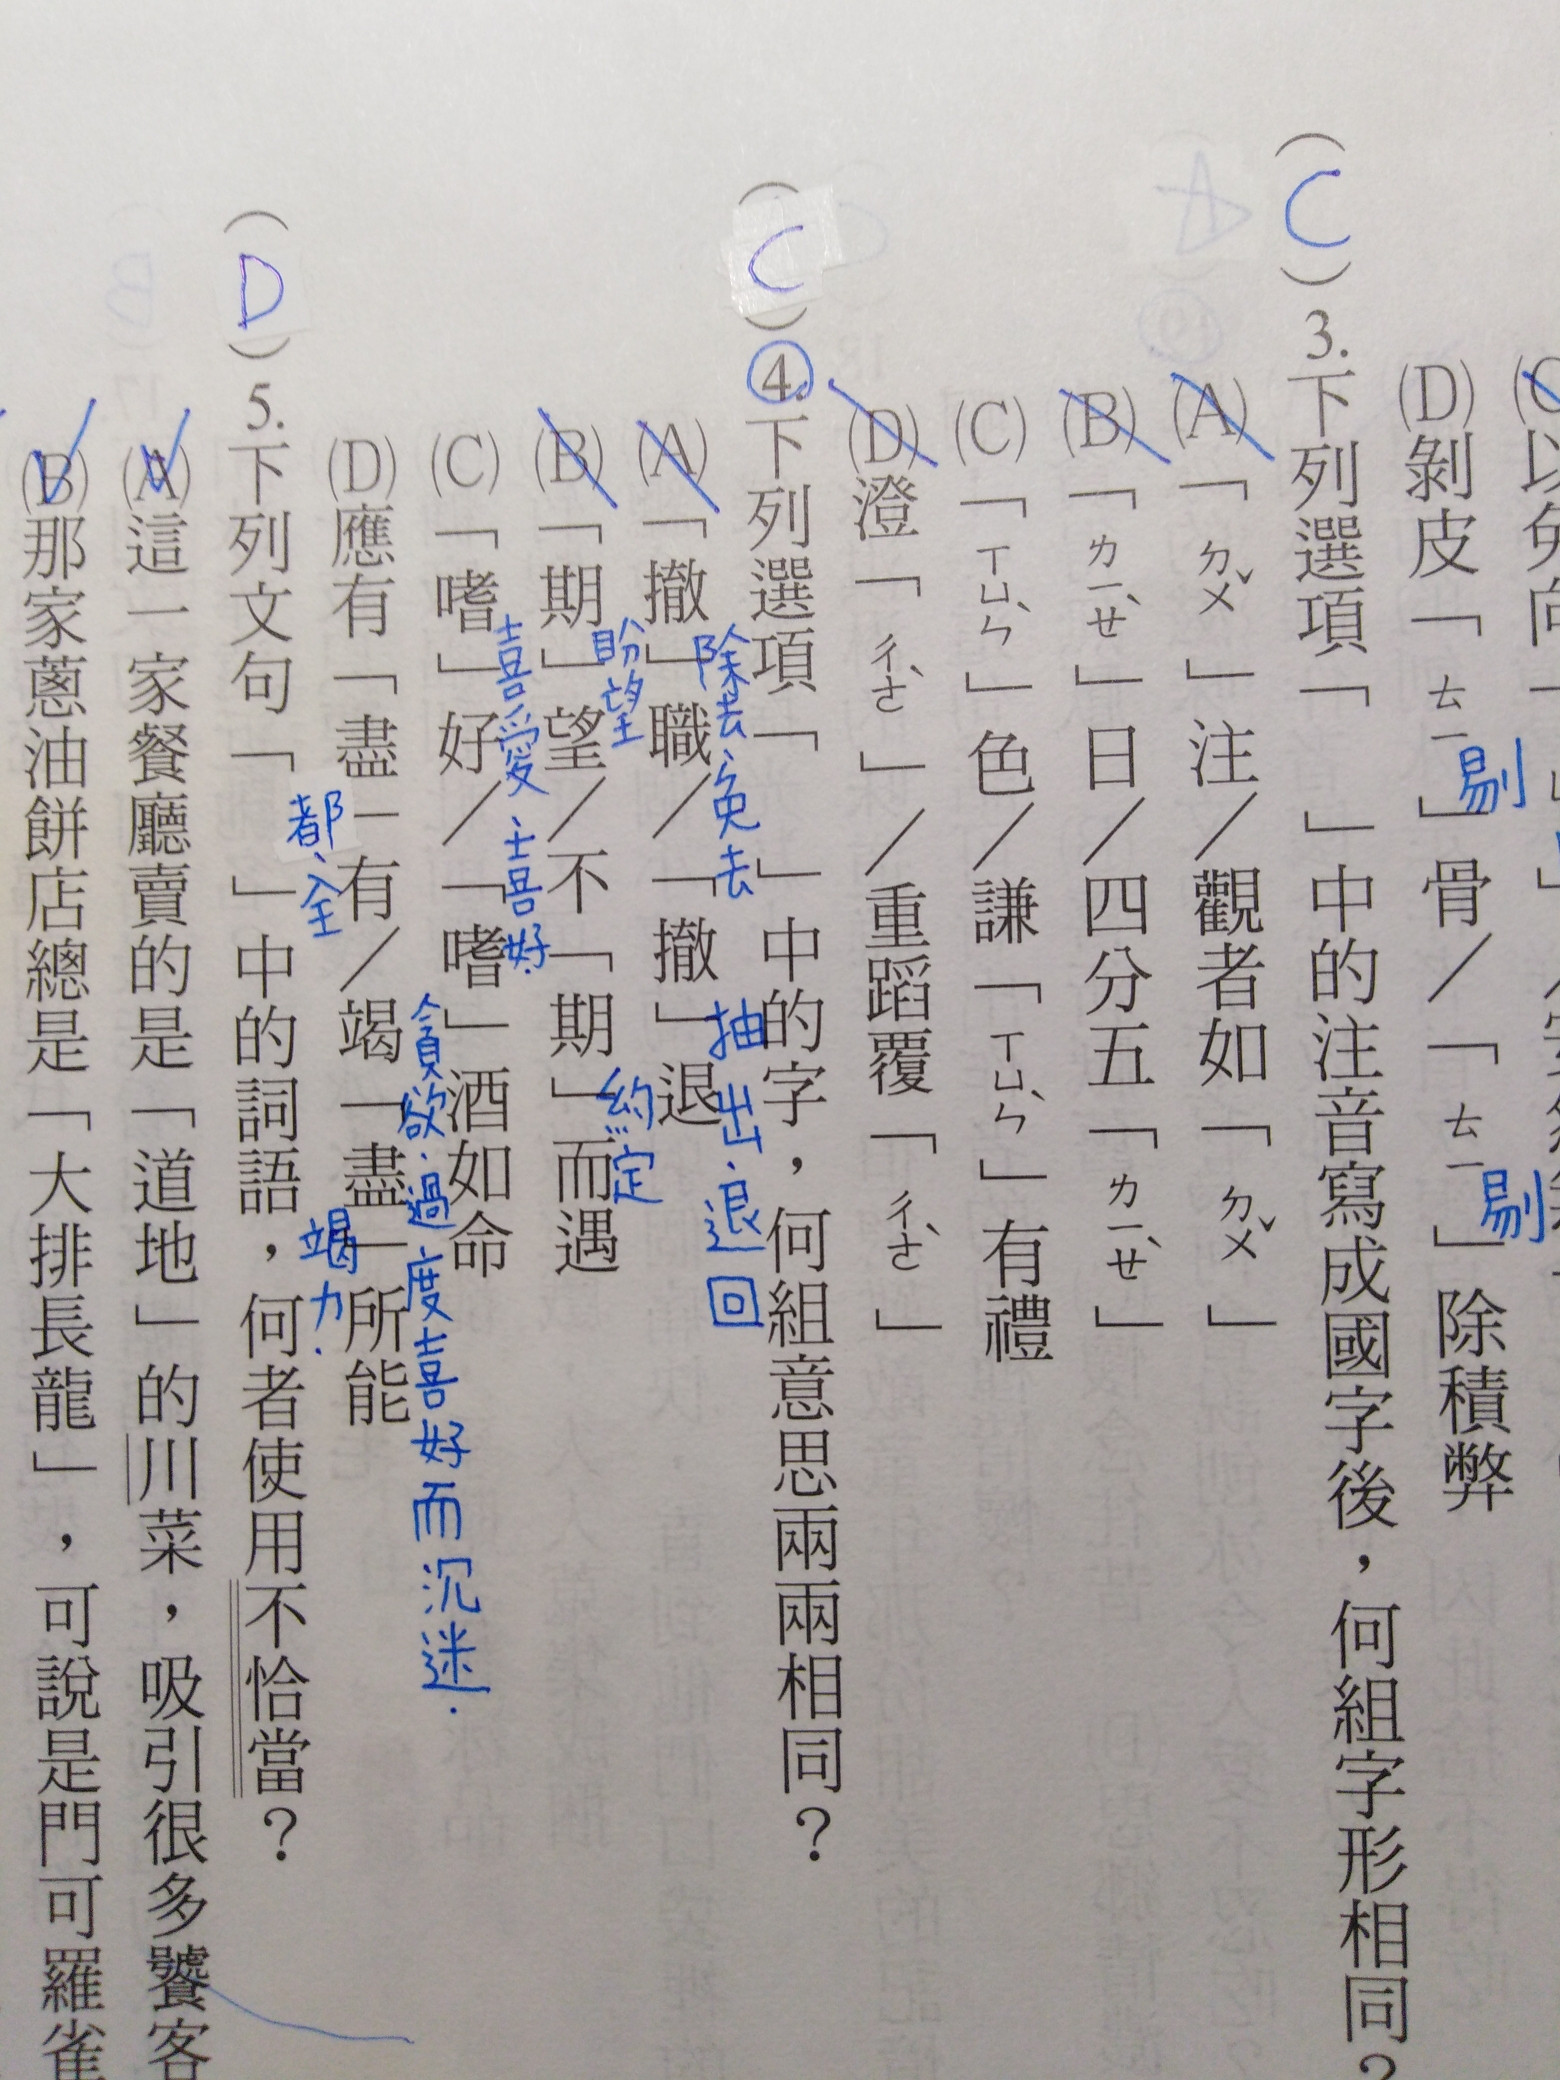 以免向「
(D)剝皮「ㄊㄧ」骨／「ㄊㄧ」除積弊
剔
剔
(C)3.下列選項「　」中的注音寫成國字後，何組字形相同？
(A)「ㄉㄨˇ」注／觀者如「ㄉㄨˇ」
(B)「ㄌㄧㄝˋ」日／四分五「ㄌㄧㄝˋ」
(C)「ㄒㄩㄣˋ」色／謙「ㄒㄩㄣˋ」有禮
(D)澄「ㄔㄜˋ」／重蹈覆「ㄔㄜˋ」
(C)4.下列選項「　」中的字，何組意思兩兩相同？
(A)「撤」職／「撤」退
除去、免去
抽出、退回
(B)「期」望／不「期」而遇
盼望
約定
(C)「嗜」好／「嗜」酒如命
喜愛、喜好
貪欲、過度喜好而沉迷.
(D)應有「盡」有／竭「盡」所能
都、全
竭力.
(D)5.下列文句「　」中的詞語，何者使用不恰當？
(A)這一家餐廳賣的是「道地」的川菜，吸引很多饕客
(B)那家蔥油餅店總是「大排長龍」，可說是門可羅雀